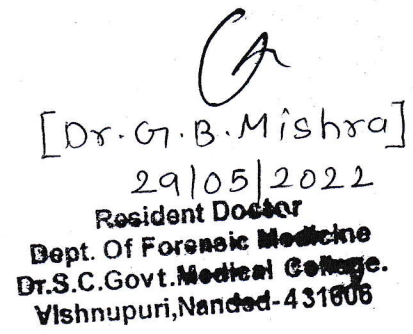 [Dr. G. B. Mishra]
29/05/2022
Resident Doctor
Dept. Of Forensic Medicine
Dr.S.C.Govt.Medical College.
Vishnupuri,Nanded-431606